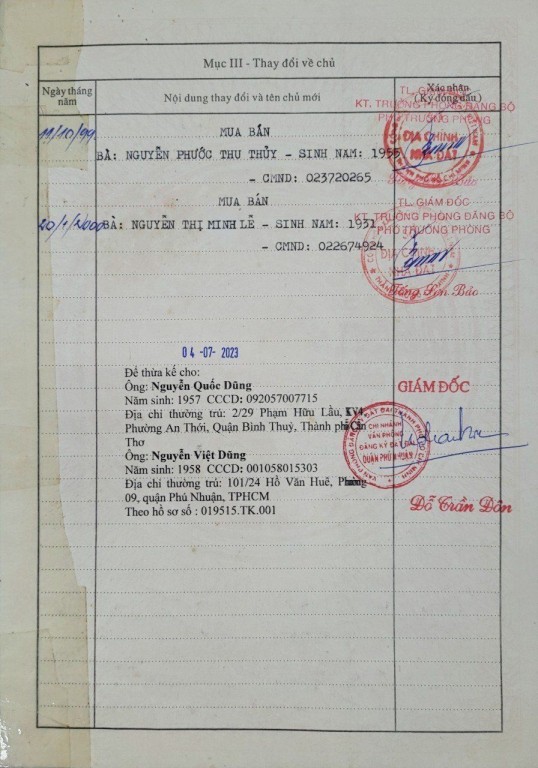 Mục III - Thay đổi về chủ
Ngày tháng năm
Nội dung thay đổi và tên chủ mới
Xác nhận
(Ký đóng dấu)
11/10/99
MUA BÁN
BÀ: NGUYỄN PHƯỚC THU THỦY - SINH NAM: 1955
- CMND: 023720265
TL. GIÁM ĐỐC
KT. TRƯỞNG PHÒNG ĐĂNG BỘ
PHÓ TRƯỞNG PHÒNG
ĐỊA CHÍNH
NHÀ ĐẤT
MUA BÁN
BÀ: NGUYỄN THỊ MINH LỄ - SINH NAM: 1931
- CMND: 022674924
TL. GIÁM ĐỐC
KT. TRƯỞNG PHÒNG ĐĂNG BỘ
PHÓ TRƯỞNG PHÒNG
ĐỊA CHÍNH
NHÀ ĐẤT
04-07-2023
Để thừa kế cho:
Ông: Nguyễn Quốc Dũng
Năm sinh: 1957 CCCD: 092057007715
Địa chí thường trú: 2/29 Phạm Hữu Lầu, KV4
Phường An Thới, Quận Bình Thuỷ, Thành phố Cần
Thơ
Ông: Nguyễn Việt Dũng
Năm sinh: 1958 CCCD: 001058015303
Địa chí thường trú: 101/24 Hồ Văn Huê, Phường
09, quận Phú Nhuận, TPHCM
Theo hồ sơ số : 019515.TK.001
GIÁM ĐỐC
CHI NHÁNH
VĂN PHÒNG
ĐĂNG KÝ ĐẤT ĐAI
QUẬN PHÚ NHUẬN
Đỗ Trần Đôn